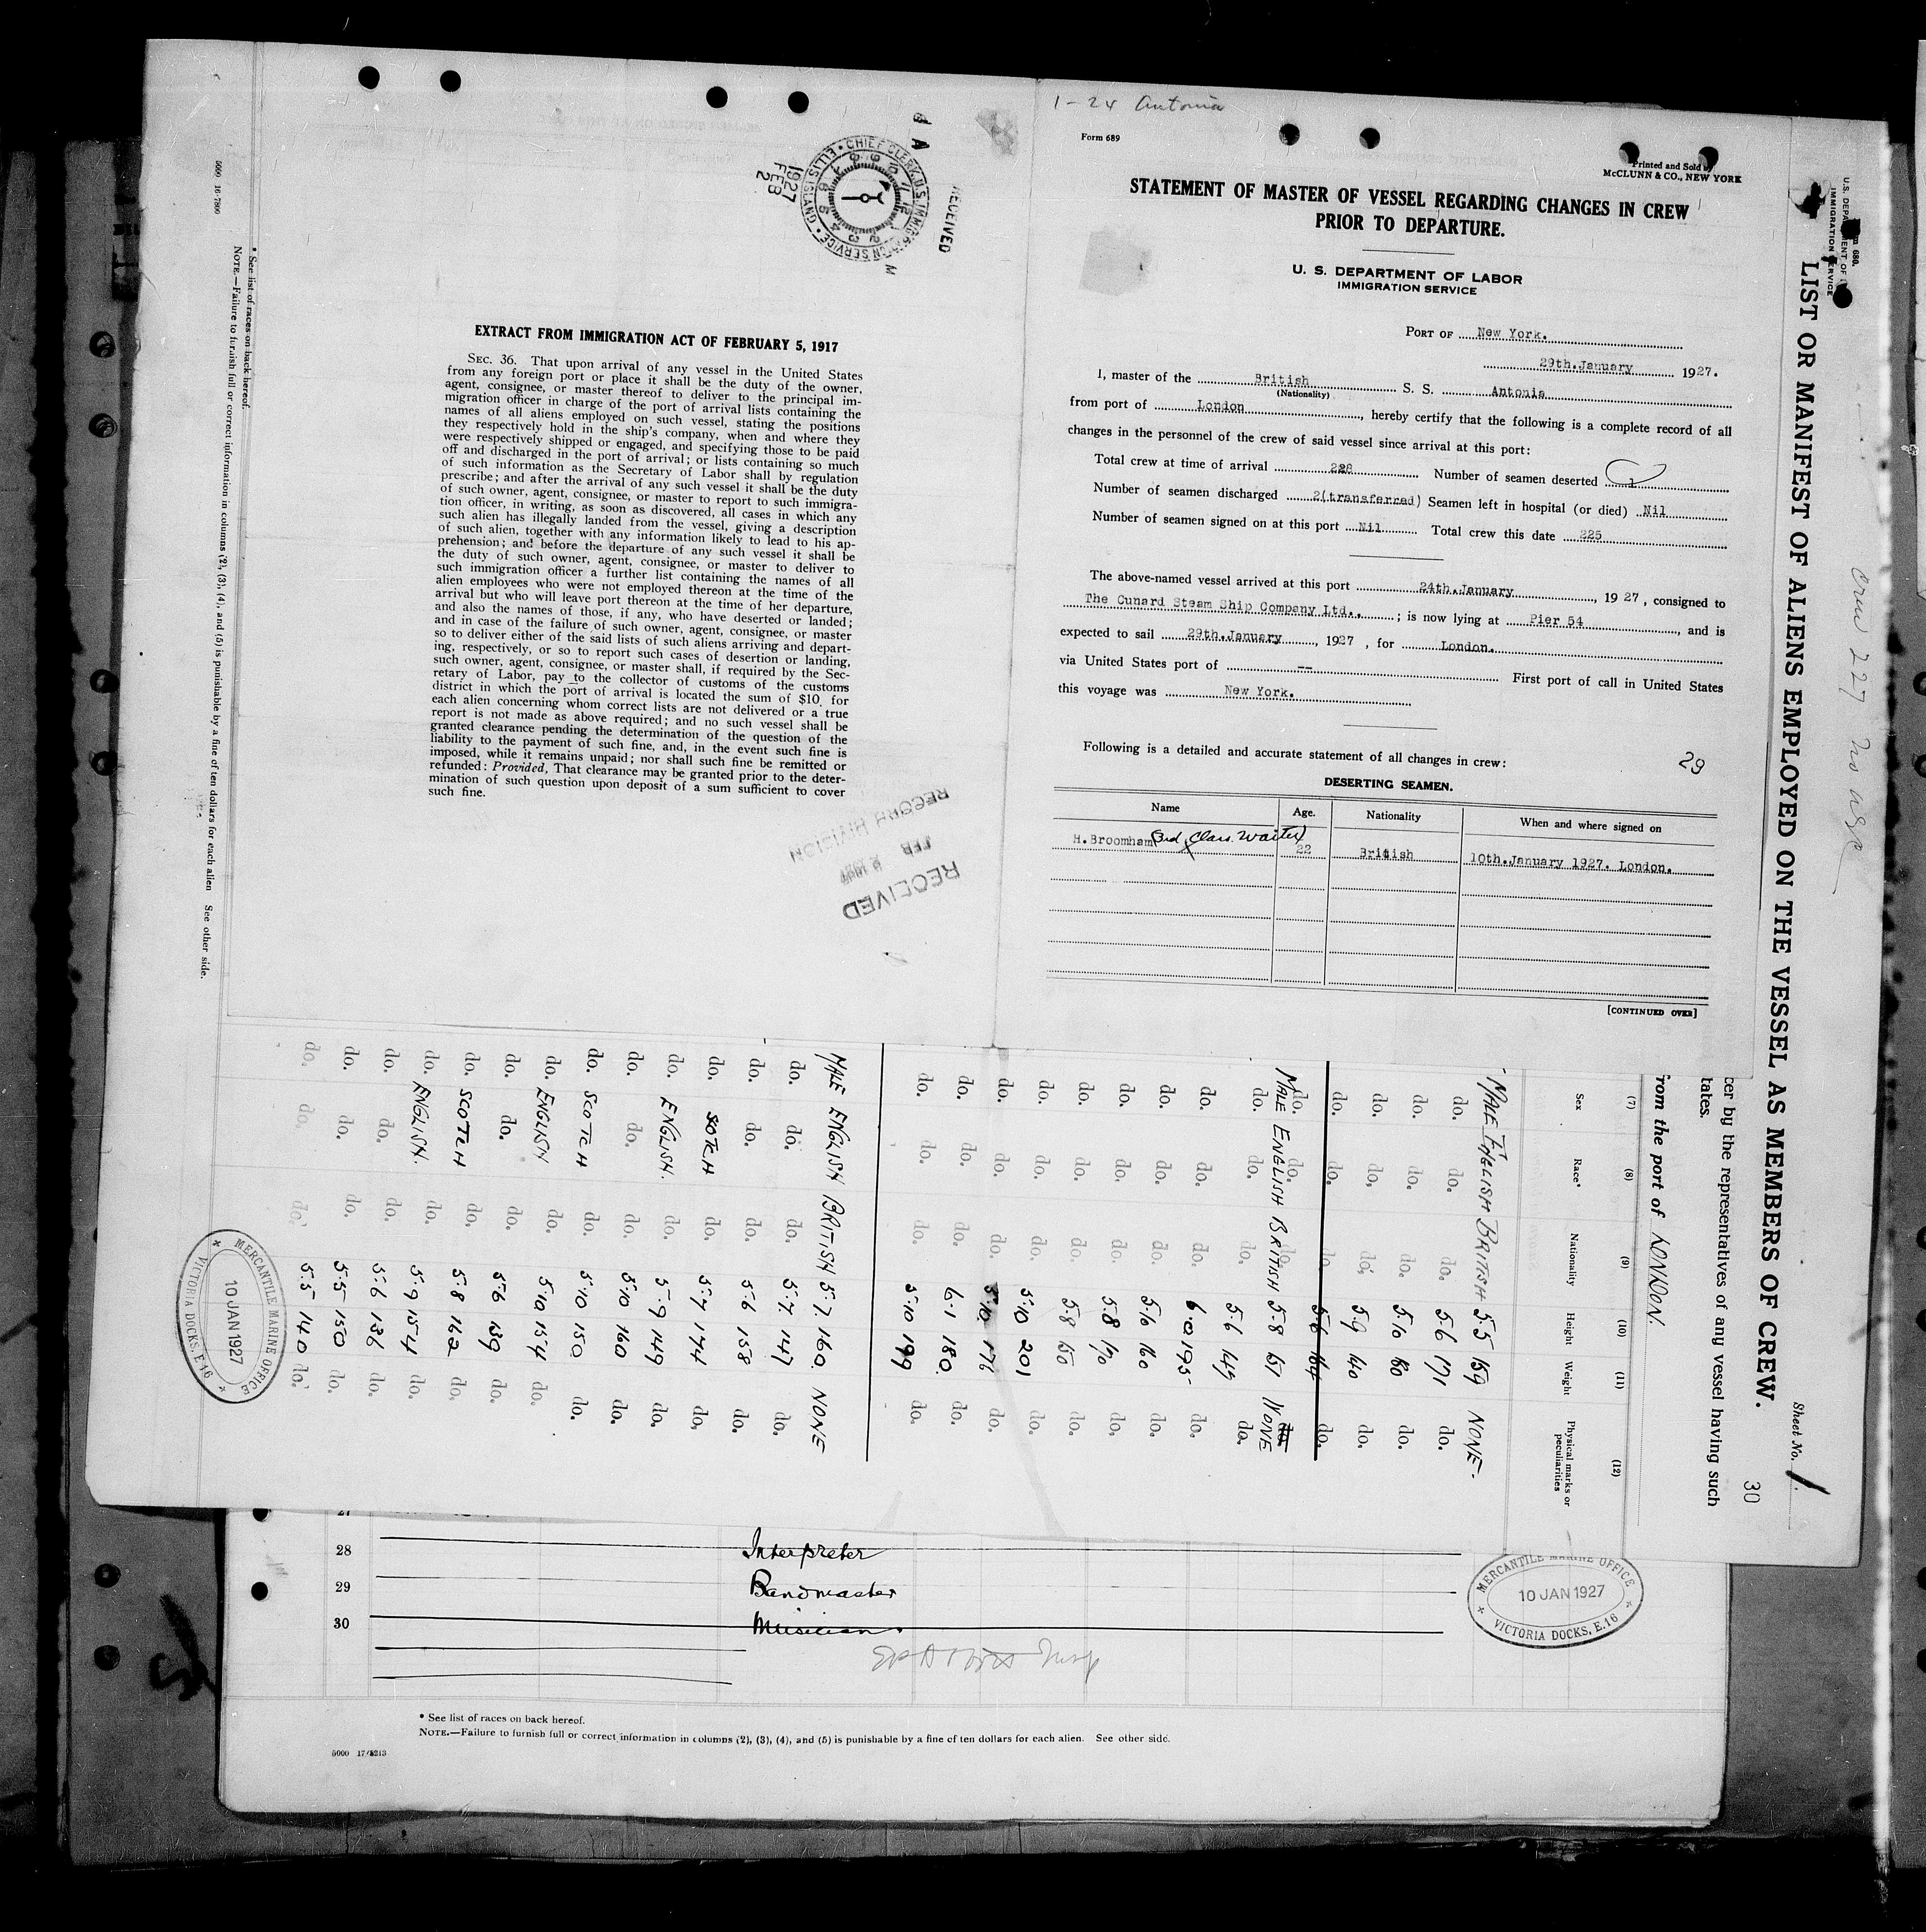 1-24 Antonia
Form 689
Printed and Sold by
McCLUNN & CO., NEW YORK
STATEMENT OF MASTER OF VESSEL REGARDING CHANGES IN CREW
PRIOR TO DEPARTURE.
U. S. DEPARTMENT OF LABOR
IMMIGRATION SERVICE
PORT OF New York.
29th.January 1927.
I, master of the British S. S. Antonia
(Nationality)
from port of London, hereby certify that the following is a complete record of all
changes in the personnel of the crew of said vessel since arrival at this port:
Total crew at time of arrival 228 Number of seamen deserted 1
Number of seamen discharged 2(transferred) Seamen left in hospital (or died) Nil
Number of seamen signed on at this port Nil Total crew this date 225
The above-named vessel arrived at this port 24th.January, 1927, consigned to
The Cunard Steam Ship Company Ltd.; is now lying at Pier 54, and is
expected to sail 29th.January, 1927, for London.
via United States port of -- First port of call in United States
this voyage was New York.
Following is a detailed and accurate statement of all changes in crew:
29
DESERTING SEAMEN.
Name Age. Nationality When and where signed on
H.Broomham (3rd Class Waiter) 22 British 10th.January 1927. London.
[CONTINUED OVER]
RECEIVED
CHIEF CLERK, U.S. IMMIGRATION SERVICE • ELLIS ISLAND
1927
FEB
2
EXTRACT FROM IMMIGRATION ACT OF FEBRUARY 5, 1917
SEC. 36. That upon arrival of any vessel in the United States
from any foreign port or place it shall be the duty of the owner,
agent, consignee, or master thereof to deliver to the principal im-
migration officer in charge of the port of arrival lists containing the
names of all aliens employed on such vessel, stating the positions
they respectively hold in the ship's company, when and where they
were respectively shipped or engaged, and specifying those to be paid
off and discharged in the port of arrival; or lists containing so much
of such information as the Secretary of Labor shall by regulation
prescribe; and after the arrival of any such vessel it shall be the duty
of such owner, agent, consignee, or master to report to such immigra-
tion officer, in writing, as soon as discovered, all cases in which any
such alien has illegally landed from the vessel, giving a description
of such alien, together with any information likely to lead to his ap-
prehension; and before the departure of any such vessel it shall be
the duty of such owner, agent, consignee, or master to deliver to
such immigration officer a further list containing the names of all
alien employees who were not employed thereon at the time of the
arrival but who will leave port thereon at the time of her departure,
and also the names of those, if any, who have deserted or landed;
and in case of the failure of such owner, agent, consignee, or master
so to deliver either of the said lists of such aliens arriving and depart-
ing, respectively, or so to report such cases of desertion or landing,
such owner, agent, consignee, or master shall, if required by the Sec-
retary of Labor, pay to the collector of customs of the customs
district in which the port of arrival is located the sum of $10 for
each alien concerning whom correct lists are not delivered or a true
report is not made as above required; and no such vessel shall be
granted clearance pending the determination of the question of the
liability to the payment of such fine, and, in the event such fine is
imposed, while it remains unpaid; nor shall such fine be remitted or
refunded: Provided, That clearance may be granted prior to the deter-
mination of such question upon deposit of a sum sufficient to cover
such fine.
RECEIVED
FEB
RECORD DIVISION
U. S. DEPARTMENT OF
IMMIGRATION SERVICE
LIST OR MANIFEST OF ALIENS EMPLOYED ON THE VESSEL AS MEMBERS OF CREW.
Sheet No. 1.
30
Crew 227 no age
cer by the representatives of any vessel having such
tates.
from the port of LONDON.
(7) (8) (9) (10) (11) (12)
Sex Race* Nationality Height Weight Physical marks or peculiarities
MALE ENGLISH BRITISH 5.5 159 NONE
do. do. do. 5.6 171 do.
do. do. do. 5.10 180 do.
do. do. do. 5.9 140 do.
do. do. do. 5.6 164 do.
do. do. do.
MALE ENGLISH BRITISH 5.8 151 NONE
do. do. do. 5.6 149 do.
do. do. do. 6.0 195 do.
do. do. do. 5.6 160 do.
do. do. do. 5.8 170 do.
do. do. do. 5.8 150 do.
do. do. do. 5.10 201 do.
do. do. do. 5.10 176 do.
do. do. do. 6.1 180. do.
do. do. do. 5.10 199 do.
MALE ENGLISH BRITISH 5.7. 160. NONE
do. do. do. 5.7 147 do.
do. do. do. 5.6 158 do.
do. SCOTCH do. 5.7 174 do.
do. ENGLISH. do. 5.9 149 do.
do. do. do. 5.10 160 do.
do. SCOTCH do. 5.10 150 do.
do. ENGLISH do. 5.10 154 do.
do. do. do. 5.6 139
do. SCOTCH do. 5.8 162 do.
do. ENGLISH. do. 5.9 154 do.
do. do. 5.6 136 do.
do. do. do. 5.5 150 do.
do. do. do. 5.5 140 do.
* See list of races on back hereof.
NOTE.—Failure to furnish full or correct information in columns (2), (3), (4), and (5) is punishable by a fine of ten dollars for each alien See other side.
5000 16-7800
MERCANTILE MARINE OFFICE
10 JAN 1927
VICTORIA DOCKS, E.16
27
28 Interpreter
29 Bandmaster
30 Musician.
MERCANTILE MARINE OFFICE
10 JAN 1927
VICTORIA DOCKS, E.16
* See list of races on back hereof.
NOTE.—Failure to furnish full or correct information in columns (2), (3), (4), and (5) is punishable by a fine of ten dollars for each alien. See other side.
5000 17/8213